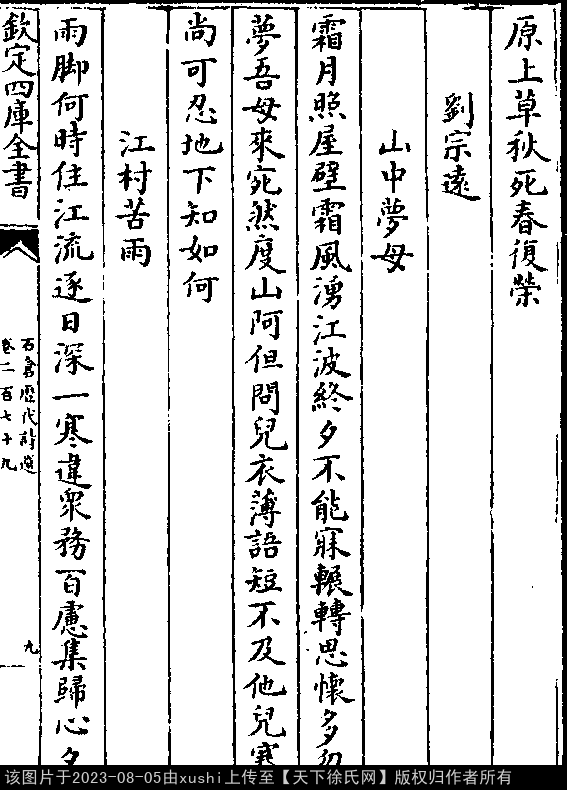 原上草秋死春復榮
劉宗遠
山中夢母
霜月照屋壁霜風湧江波終夕不能寐輾轉思懷多忽
夢吾母來宛然度山阿但問兒衣薄語短不及他兒寒
尚可忍地下知如何
江村苦雨
雨脚何時住江流逐日深一寒違衆務百慮集歸心夕
欽定四庫全書
石倉歷代詩選
卷二百七十九
九
该图片于2023-08-05由xushi上传至【天下徐氏网】版权归作者所有